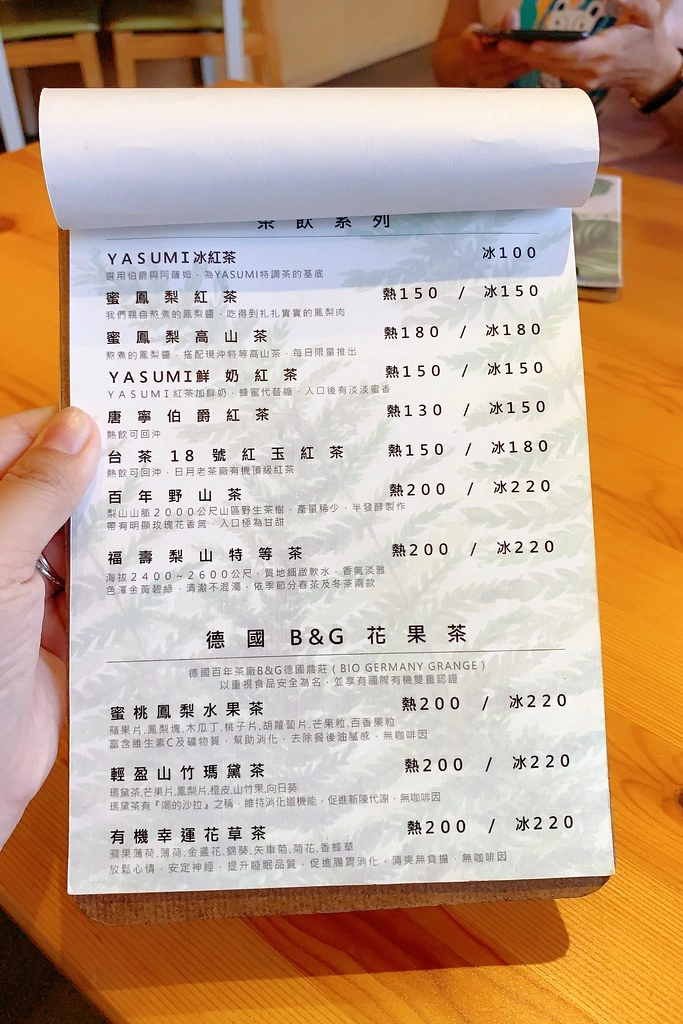 茶飲系列
YASUMI冰紅茶 冰100
選用伯爵與阿薩姆，為YASUMI特調茶的基底
蜜鳳梨紅茶 熱150 / 冰150
我們親自熬煮的鳳梨醬，吃得到扎扎實實的鳳梨肉
蜜鳳梨高山茶 熱180 / 冰180
熬煮的鳳梨醬，搭配現沖特等高山茶，每日限量推出
YASUMI鮮奶紅茶 熱150 / 冰150
YASUMI紅茶加鮮奶，蜂蜜代替糖，入口後有淡淡蜜香
唐寧伯爵紅茶 熱130 / 冰150
熱飲可回沖
台茶18號紅玉紅茶 熱150 / 冰180
熱飲可回沖，日月老茶廠有機頂級紅茶
百年野山茶 熱200 / 冰220
梨山山脈2000公尺山區野生茶樹，產量稀少，半發酵製作
帶有明顯玫瑰花香氣，入口極為甘甜
福壽梨山特等茶 熱200 / 冰220
海拔2400~2600公尺，質地細緻軟水，香氣淡雅
色澤金黃碧綠，清澈不混濁，依季節分春茶及冬茶兩款
德國 B&G 花果茶
德國百年茶廠B&G德國農莊（BIO GERMANY GRANGE）
以重視食品安全為名，並享有國際有機雙重認證
蜜桃鳳梨水果茶 熱200 / 冰220
蘋果片,鳳梨塊,木瓜丁,桃子片,胡蘿蔔片,芒果粒,百香果粒
富含維生素C及礦物質，幫助消化，去除餐後油膩感，無咖啡因
輕盈山竹瑪黛茶 熱200 / 冰220
瑪黛茶,芒果片,鳳梨片,橙皮,山竹果,向日葵
瑪黛茶有『喝的沙拉』之稱，維持消化道機能，促進新陳代謝，無咖啡因
有機幸運花草茶 熱200 / 冰220
蘋果薄荷,薄荷,金盞花,錦葵,矢車菊,菊花,香蜂草
放鬆心情，安定神經，提升睡眠品質，促進腸胃消化，清爽無負擔，無咖啡因